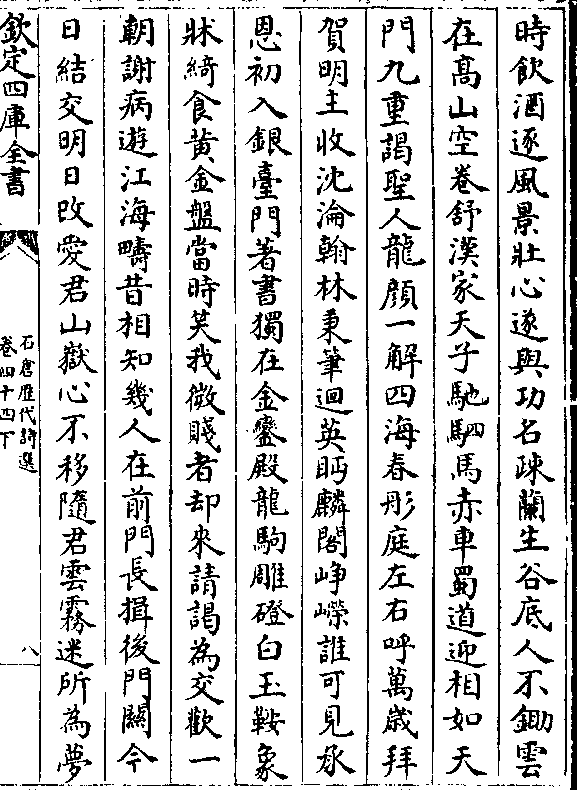 時飲酒逐風景壯心遂與功名疎蘭生谷底人不鋤雲
在髙山空卷舒漢家天子馳駟馬赤車蜀道迎相如天
門九重謁聖人龍顔一解四海春彤庭左右呼萬歳拜
賀明主收沈淪翰林秉筆迴英眄麟閣崢嶸誰可見承
恩初入銀臺門著書獨在金鑾殿龍駒雕鐙白玉鞍象
牀綺食黄金盤當時笑我微賤者却來請謁為交歡一
朝謝病遊江海疇昔相知幾人在前門長揖後門關今
日結交明日改愛君山嶽心不移隨君雲霧迷所為夢
欽定四庫全書
石倉歴代詩選
卷四十四下
八